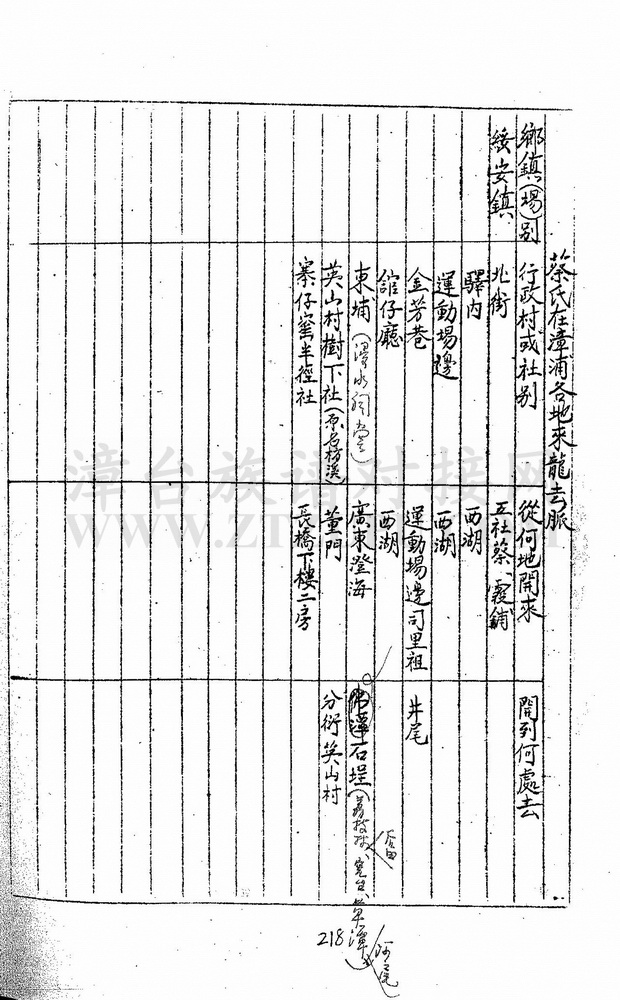 蔡氏在漳浦各地來龍去脈
鄉鎮(場)別
行政村或社别
從何地開來
開到何處去
綏安鎮
北街
五社蔡、霞鋪
驛内
西湖
運動場邊
西湖
金芳巷
運動場邊司里祖
井尾
舘仔廳
西湖
東埔
廣東澄海
石埕
英山村樹下社(原名枋溪)
董門
分衍英山村
寨仔窑半徑社
長橋下樓二房
218
漳台族谱对接网